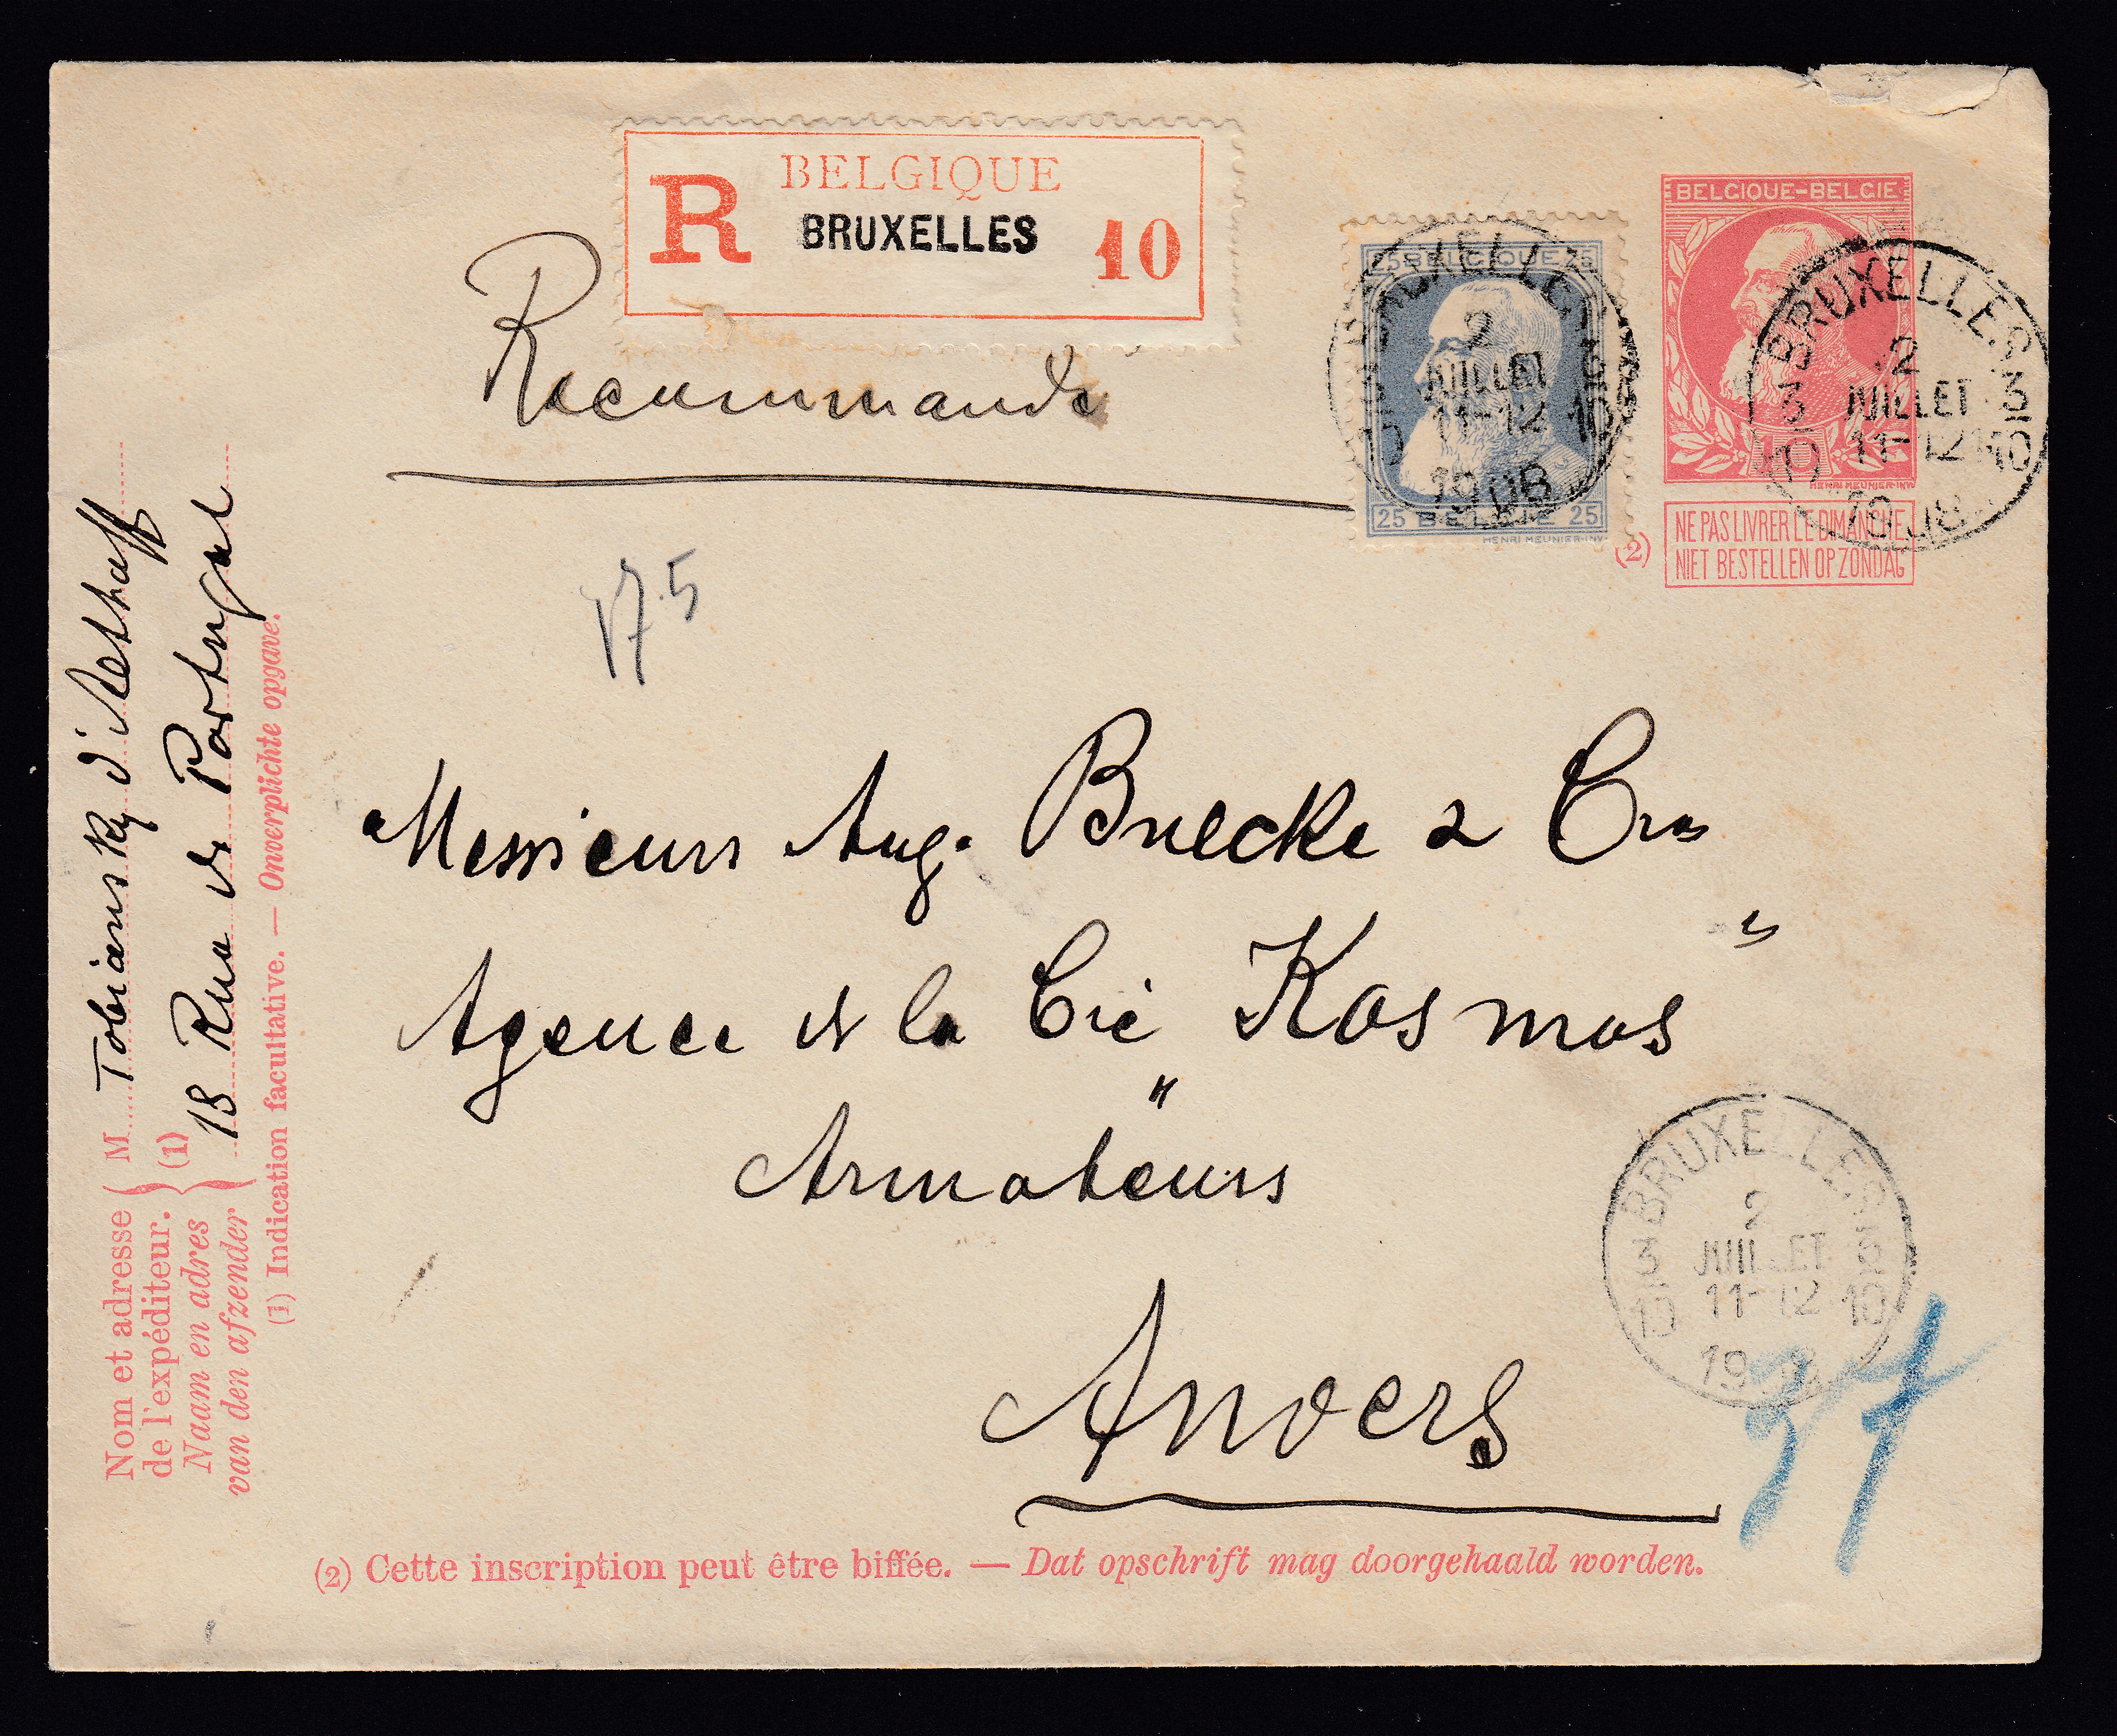 BELGIQUE
R BRUXELLES 10
Recommandé
25 BELGIQUE 25
25 BELGIË 25
HENRI MEUNIER·INV·
BELGIQUE-BELGIE
HENRI MEUNIER·INV·
(2)
NE PAS LIVRER LE DIMANCHE
NIET BESTELLEN OP ZONDAG
BRUXELLES
2
JUILLET
11-12
1908
3 3
10 10
BRUXELLES
2
JUILLET
11-12
1908
3 3
10 10
175
Messieurs Aug. Bulcke & Cie
Agence de la Cie "Kosmos"
Armateurs
Anvers
BRUXELLES
2
JUILLET
11-12
19
3 3
10 10
37
(2) Cette inscription peut être biffée. — Dat opschrift mag doorgehaald worden.
Nom et adresse
de l'expéditeur.
Naam en adres
van den afzender
(1)
M Tobiansky d'Althoff
18 Rue de Portugal
(1) Indication facultative. — Onverplichte opgave.